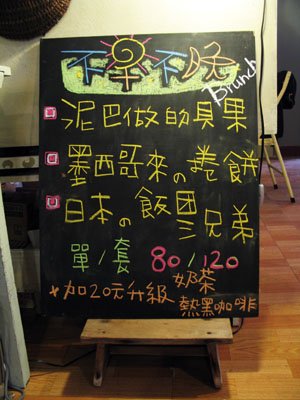 不早不晚
Brunch
泥巴做的貝果
墨西哥來の捲餅
日本の飯団三兄弟
單/套 80/120
*加20元升級 奶茶
熱黑咖啡